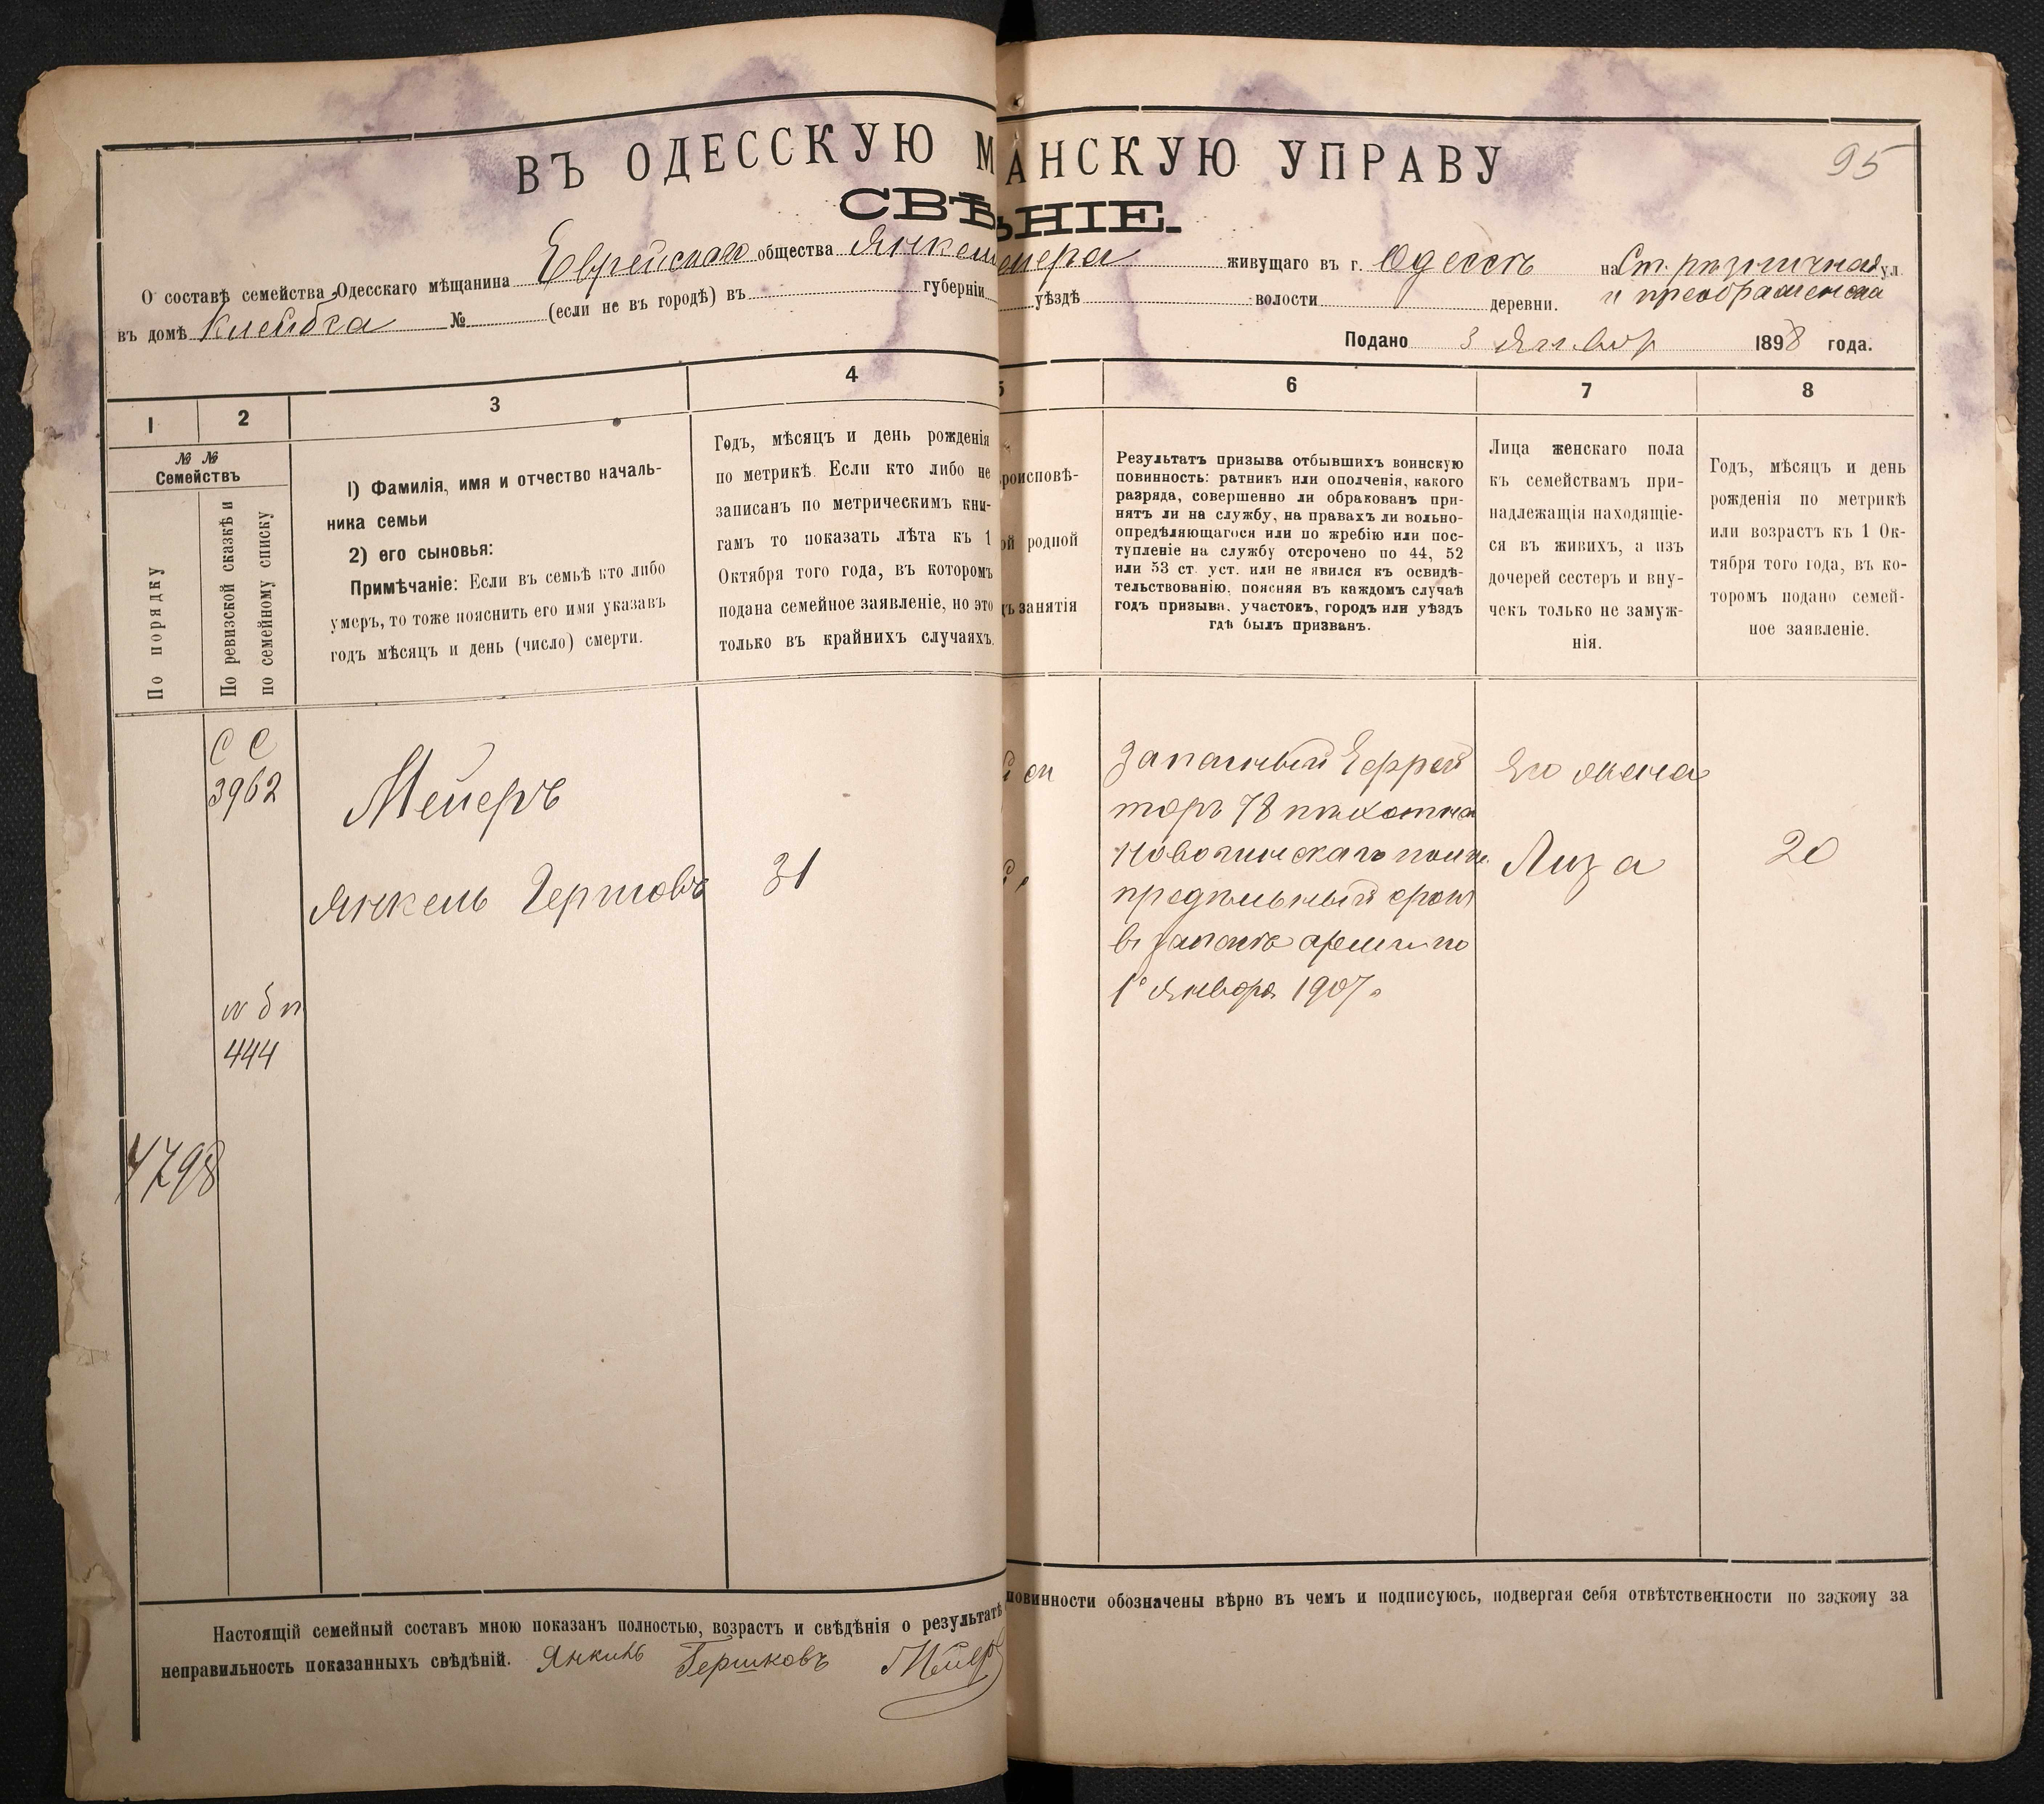 95
ВЪ ОДЕССКУЮ М АНСКУЮ УПРАВУ
СВѢ ѢНІЕ.
О составѣ семейства Одесскаго мѣщанина Еврейскаго общества Янкел ейера живущаго въ г. Одессѣ на Ст. рѣзничная ул
и преображенска
въ домѣ Клейбга № (если не въ городѣ) въ губерніи уѣздѣ волости деревни.
Подано 3 Январ 1898 года.
1 2 3 4 5 6 7 8
№ №
Семействъ
По порядку
По ревизской сказкѣ и
по семейному списку
1) Фамилія, имя и отчество началь-
ника семьи
2) его сыновья:
Примѣчаніе: Если въ семьѣ кто либо
умеръ, то тоже пояснить его имя указавъ
годъ мѣсяцъ и день (число) смерти.
Годъ, мѣсяцъ и день рожденія
по метрикѣ. Если кто либо не
записанъ по метрическимъ кни-
гамъ то показать лѣта къ 1
Октября того года, въ которомъ
подана семейное заявленіе, но это
только въ крайнихъ случаяхъ.
роисповѣ-
ой родной
ъ занятія
Результатъ призыва отбывшихъ воинскую
повинность: ратникъ или ополченія, какого
разряда, совершенно ли обракованъ при-
нятъ ли на службу, на правахъ ли вольно-
опредѣляющагося или по жребію или пос-
тупленіе на службу отсрочено по 44, 52
или 53 ст. уст. или не явился къ освидѣ-
тельствованію, поясняя въ каждомъ случаѣ
годъ призыва, участокъ, городъ или уѣздъ
гдѣ былъ призванъ.
Лица женскаго пола
къ семействамъ при-
надлежащія находящіе-
ся въ живихъ, а изъ
дочерей сестеръ и вну-
чекъ только не замуж-
нія.
Годъ, мѣсяцъ и день
рожденія по метрикѣ
или возрастъ къ 1 Ок-
тября того года, въ ко-
торомъ подано семей-
ное заявленіе.
С С
3962
Мейеръ
Янкель Гершовъ
31
Запасный Ефрей
торъ 78 пѣхотна
предѣльный срокъ
въ запасѣ арміи по
1е Января 1907.
Его жена
Лиза
20
444
4798
Настоящій семейный составъ мною показанъ полностью, возрастъ и свѣдѣнія о результатѣ повинности обозначены вѣрно въ чемъ и подписуюсь, подвергая себя отвѣтственности по закону за
неправильность показанныхъ свѣдѣній. Янкиль Гершковъ Мейер